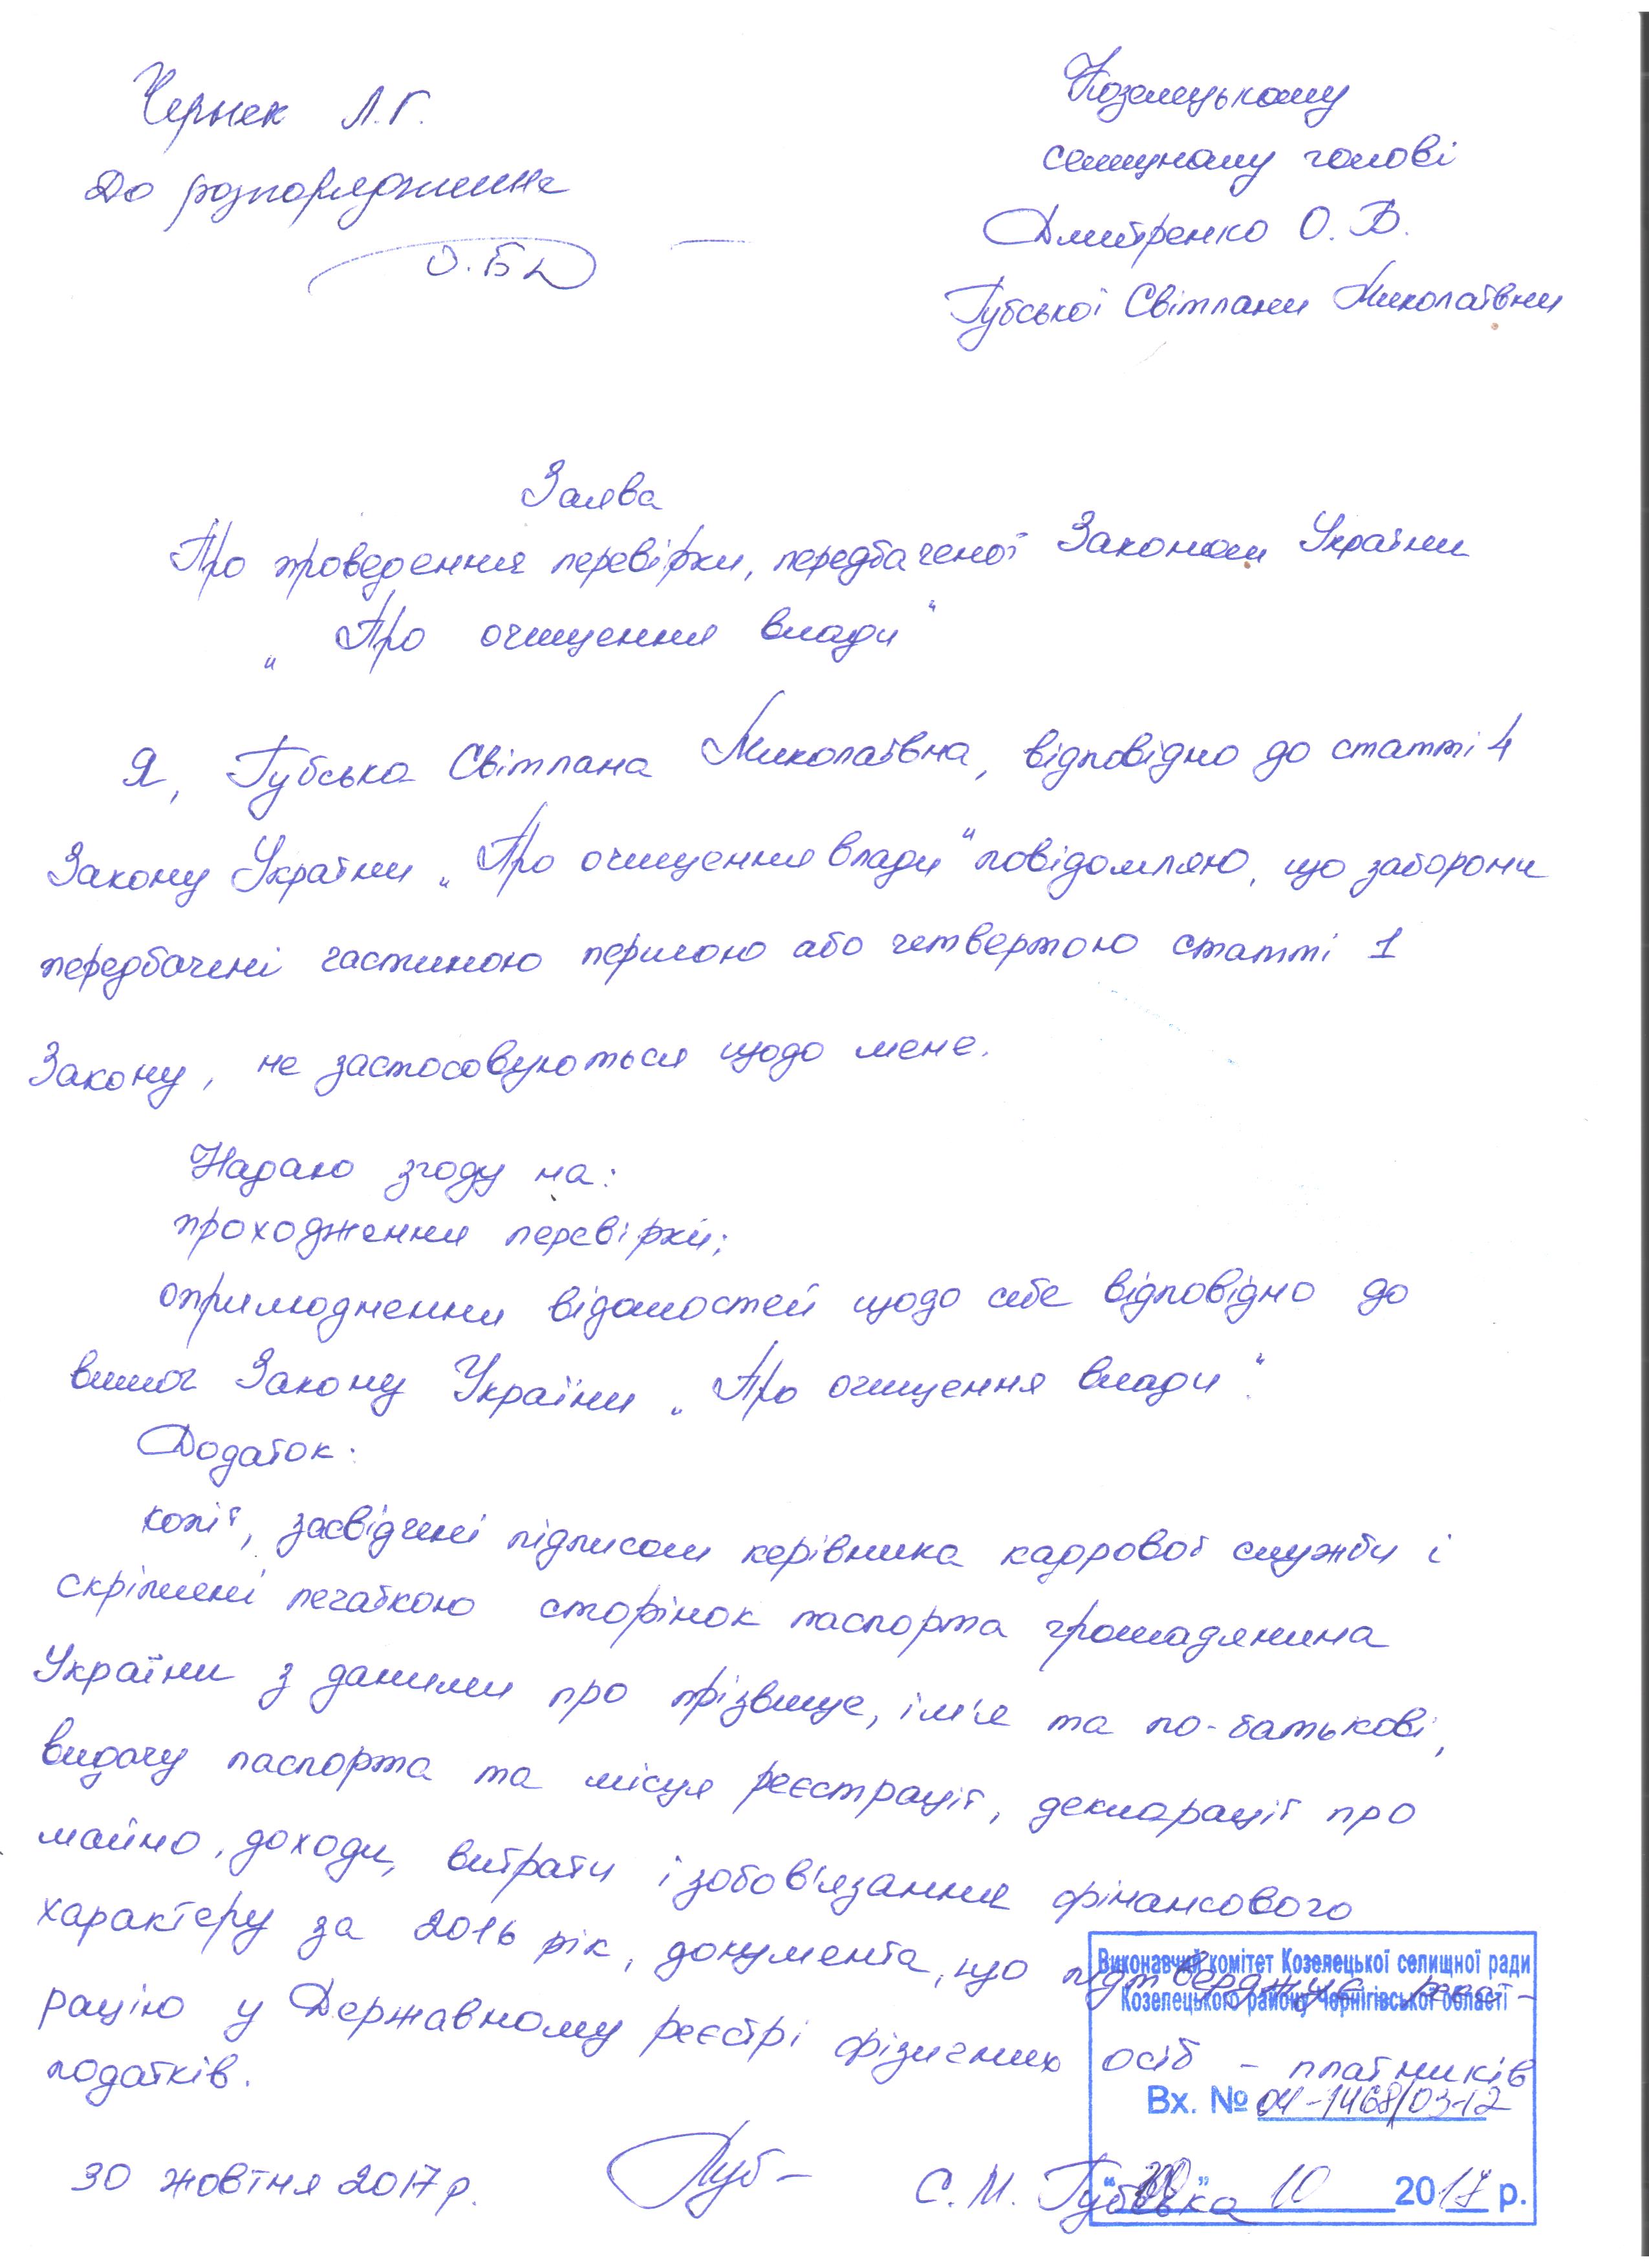 Чернек Л.Г.
До розпорядження
Козелецькому
селищному голові
Дмитренко О. В.
Губської Світлани Миколаївни
Заява
Про проведення перевірки, передбаченої Законом України
„Про очищення влади"
Я, Губська Світлана Миколаївна, відповідно до статті 4
Закону України „Про очищення влади" повідомляю, що заборони
передбачені частиною першою або четвертою статті 1
Закону, не застосовуються щодо мене.
Надаю згоду на:
проходження перевірки;
оприлюднення відомостей щодо себе відповідно до
вимог Закону України „Про очищення влади".
Додаток:
копії, засвідчені підписом керівника кадрової служби і
скріплені печаткою сторінок паспорта громадянина
України з даними про прізвище, ім'я та по-батькові,
видачу паспорта та місця реєстрації, декларації про
майно, доходи, витрати і зобов'язання фінансового
характеру за 2016 рік, документа, що підтверджує реєст-
рацію у Державному реєстрі фізичних осіб - платників
податків.
30 жовтня 2017 р.
С. М. Губська
Виконавчий комітет Козелецької селищної ради
Козелецького району Чернігівської області
Вх. № 04-1468/03-12
"30" 10 2017 р.